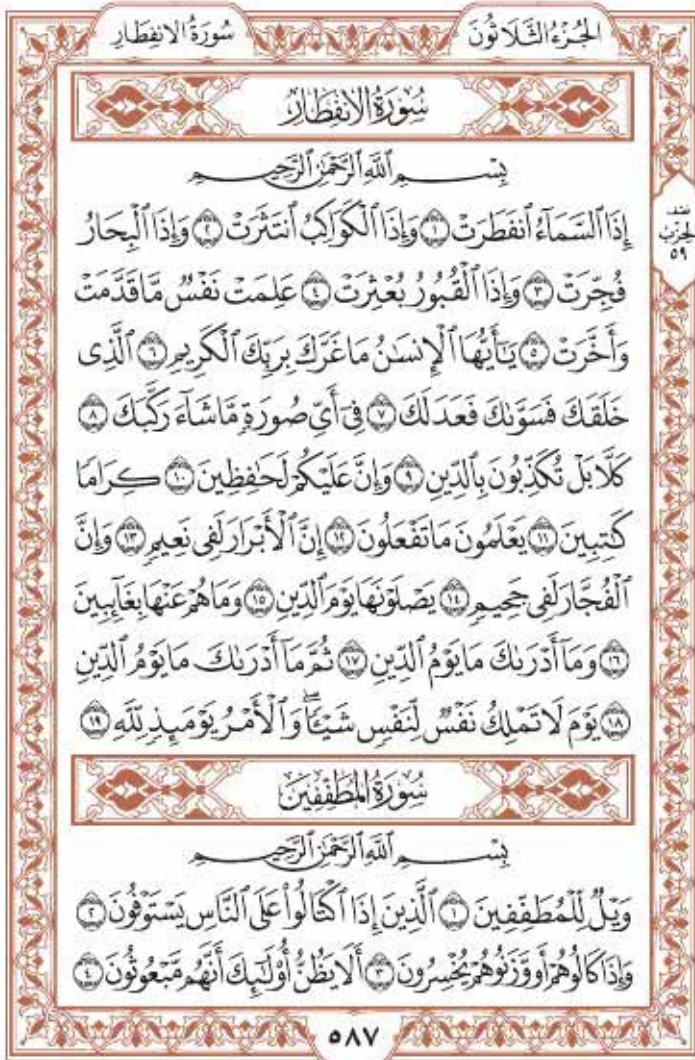 الجُزْءُ الثَّلَاثُونَ
سُورَةُ الانفِطَارِ
سُورَةُ الانفِطَارِ
بِسْمِ ٱللَّهِ ٱلرَّحْمَٰنِ ٱلرَّحِيمِ
إِذَا ٱلسَّمَآءُ ٱنفَطَرَتْ ۝١ وَإِذَا ٱلْكَوَاكِبُ ٱنتَثَرَتْ ۝٢ وَإِذَا ٱلْبِحَارُ
نصف
الحزب
٥٩
فُجِّرَتْ ۝٣ وَإِذَا ٱلْقُبُورُ بُعْثِرَتْ ۝٤ عَلِمَتْ نَفْسٌ مَّا قَدَّمَتْ
وَأَخَّرَتْ ۝٥ يَٰٓأَيُّهَا ٱلْإِنسَٰنُ مَا غَرَّكَ بِرَبِّكَ ٱلْكَرِيمِ ۝٦ ٱلَّذِى
خَلَقَكَ فَسَوَّىٰكَ فَعَدَلَكَ ۝٧ فِىٓ أَىِّ صُورَةٍ مَّا شَآءَ رَكَّبَكَ ۝٨
كَلَّا بَلْ تُكَذِّبُونَ بِٱلدِّينِ ۝٩ وَإِنَّ عَلَيْكُمْ لَحَٰفِظِينَ ۝١٠ كِرَامًا
كَٰتِبِينَ ۝١١ يَعْلَمُونَ مَا تَفْعَلُونَ ۝١٢ إِنَّ ٱلْأَبْرَارَ لَفِى نَعِيمٍ ۝١٣ وَإِنَّ
ٱلْفُجَّارَ لَفِى جَحِيمٍ ۝١٤ يَصْلَوْنَهَا يَوْمَ ٱلدِّينِ ۝١٥ وَمَا هُمْ عَنْهَا بِغَآئِبِينَ
۝١٦ وَمَآ أَدْرَىٰكَ مَا يَوْمُ ٱلدِّينِ ۝١٧ ثُمَّ مَآ أَدْرَىٰكَ مَا يَوْمُ ٱلدِّينِ
۝١٨ يَوْمَ لَا تَمْلِكُ نَفْسٌ لِّنَفْسٍ شَيْـًٔا ۖ وَٱلْأَمْرُ يَوْمَئِذٍ لِّلَّهِ ۝١٩
سُورَةُ المُطَفِّفِينَ
بِسْمِ ٱللَّهِ ٱلرَّحْمَٰنِ ٱلرَّحِيمِ
وَيْلٌ لِّلْمُطَفِّفِينَ ۝١ ٱلَّذِينَ إِذَا ٱكْتَالُوا۟ عَلَى ٱلنَّاسِ يَسْتَوْفُونَ ۝٢
وَإِذَا كَالُوهُمْ أَو وَّزَنُوهُمْ يُخْسِرُونَ ۝٣ أَلَا يَظُنُّ أُو۟لَٰٓئِكَ أَنَّهُم مَّبْعُوثُونَ ۝٤
٥٨٧